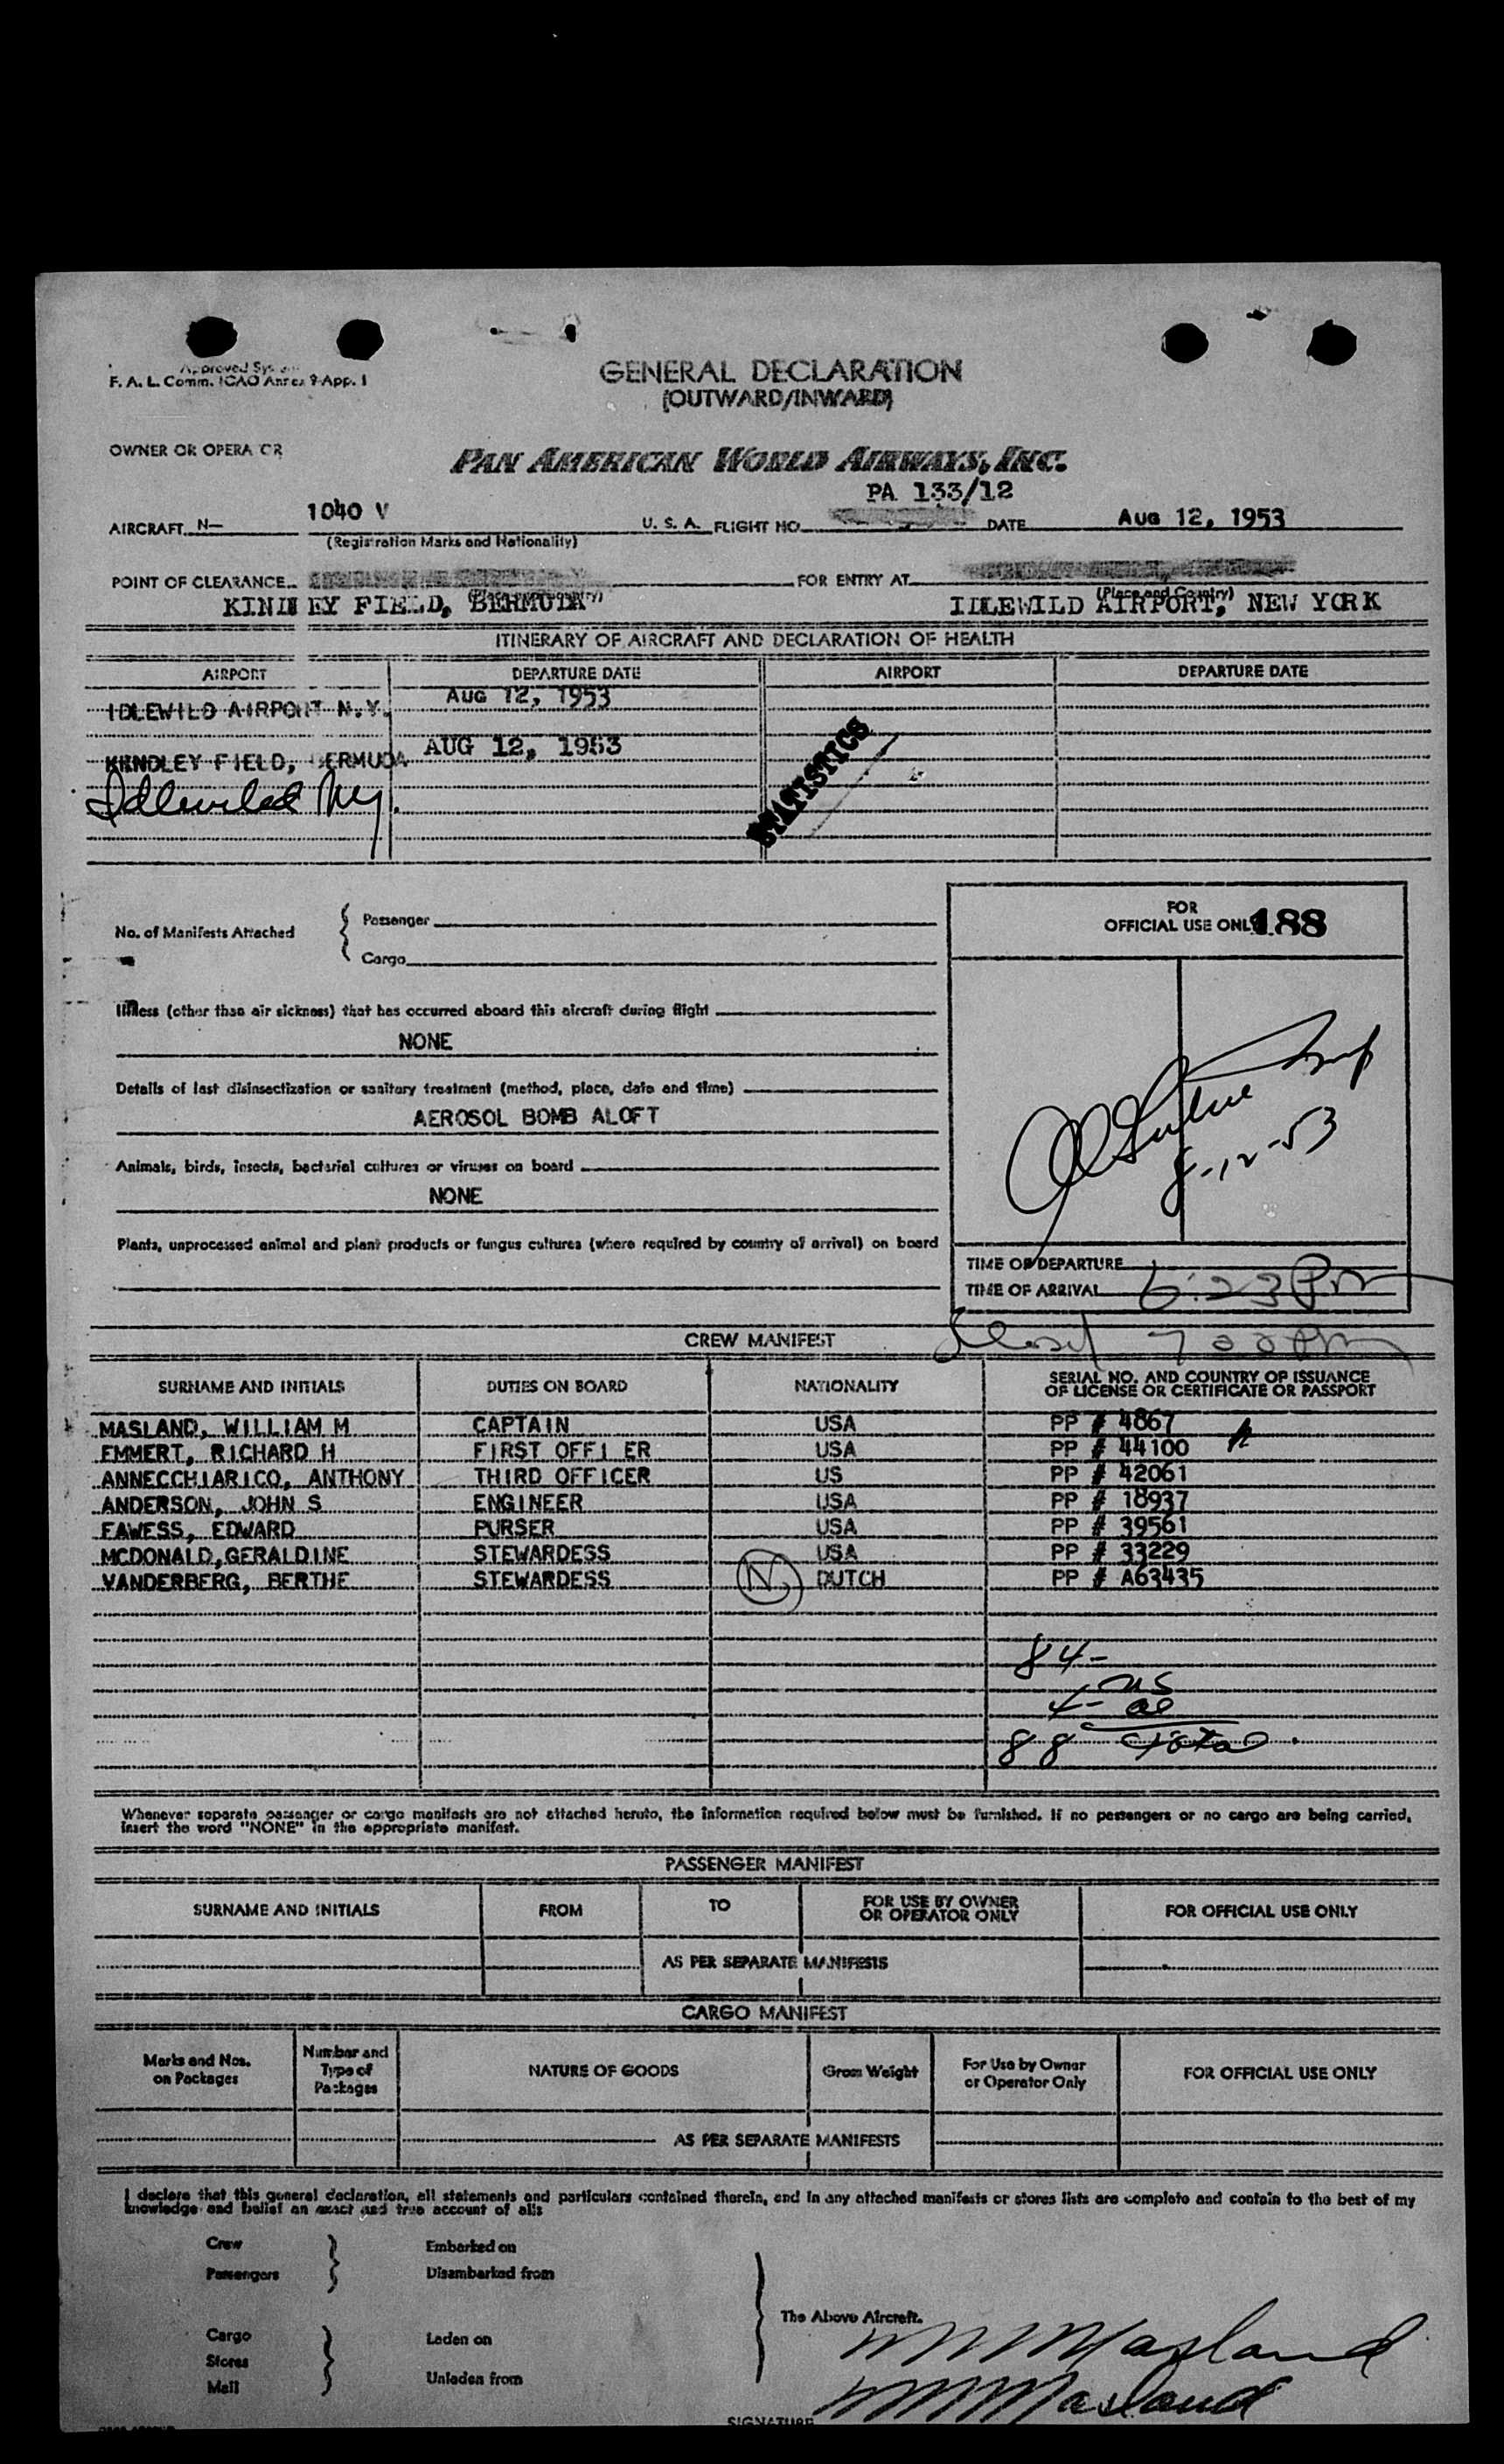 Approved System
F. A. L. Comm. ICAO Annex 9 App. 1
GENERAL DECLARATION
(OUTWARD/INWARD)
OWNER OR OPERATOR
PAN AMERICAN WORLD AIRWAYS, INC.
PA 133/12
AIRCRAFT N— 1040 V U. S. A. FLIGHT NO. DATE AUG 12, 1953
(Registration Marks and Nationality)
POINT OF CLEARANCE FOR ENTRY AT
(Place and Country) (Place and Country)
KINDLEY FIELD, BERMUDA IDLEWILD AIRPORT, NEW YORK
ITINERARY OF AIRCRAFT AND DECLARATION OF HEALTH
AIRPORT DEPARTURE DATE AIRPORT DEPARTURE DATE
IDLEWILD AIRPORT N.Y. AUG 12, 1953
KINDLEY FIELD, BERMUDA AUG 12, 1953
Idlewild NY.
STATISTICS
FOR
OFFICIAL USE ONLY 188
No. of Manifests Attached { Passenger
Cargo
Illness (other than air sickness) that has occurred aboard this aircraft during flight
NONE
Details of last disinsectization or sanitary treatment (method, place, date and time)
AEROSOL BOMB ALOFT
8-12-53
Animals, birds, insects, bacterial cultures or viruses on board
NONE
Plants, unprocessed animal and plant products or fungus cultures (where required by country of arrival) on board
TIME OF DEPARTURE
TIME OF ARRIVAL 6:23 PM
7 00 PM
CREW MANIFEST
SURNAME AND INITIALS DUTIES ON BOARD NATIONALITY SERIAL NO. AND COUNTRY OF ISSUANCE
OF LICENSE OR CERTIFICATE OR PASSPORT
MASLAND, WILLIAM M CAPTAIN USA PP # 4867
EMMERT, RICHARD H FIRST OFFI ER USA PP # 44100
ANNECCHIARICO, ANTHONY THIRD OFFICER US PP # 42061
ANDERSON, JOHN S ENGINEER USA PP # 18937
FAWESS, EDWARD PURSER USA PP # 39561
MCDONALD,GERALDINE STEWARDESS USA PP # 33229
VANDERBERG, BERTHE STEWARDESS N DUTCH PP # A63435
84- US
4- al
88 total
Whenever separate passenger or cargo manifests are not attached hereto, the information required below must be furnished. If no passengers or no cargo are being carried,
insert the word "NONE" in the appropriate manifest.
PASSENGER MANIFEST
SURNAME AND INITIALS FROM TO FOR USE BY OWNER
OR OPERATOR ONLY FOR OFFICIAL USE ONLY
AS PER SEPARATE MANIFESTS
CARGO MANIFEST
Marks and Nos.
on Packages Number and
Type of
Packages NATURE OF GOODS Gross Weight For Use by Owner
or Operator Only FOR OFFICIAL USE ONLY
AS PER SEPARATE MANIFESTS
I declare that this general declaration, all statements and particulars contained therein, and in any attached manifests or stores lists are complete and contain to the best of my
knowledge and belief an exact and true account of all:
Crew Embarked on
Passengers Disembarked from
The Above Aircraft.
Cargo Laden on
Stores
Mail Unladen from
WM Masland
WM Masland
SIGNATURE